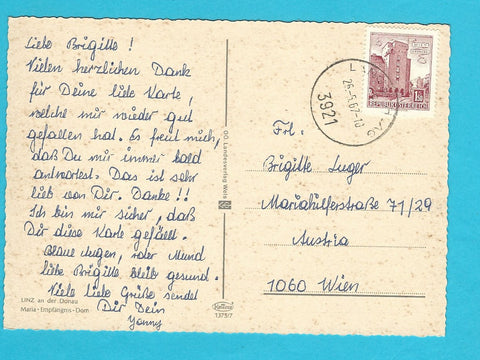 Liebe Brigitte!
Vielen herzlichen Dank
für Deine liebe Karte,
welche mir wieder gut
gefallen hat. Es freut mich,
daß Du mir immer bald
antwortest. Das ist sehr
lieb von Dir. Danke!!
Ich bin mir sicher, daß
Dir diese Karte gefällt.
Blaue Augen, roter Mund
liebe Brigitte bleib gesund.
Viele liebe Grüße sendet
Dir Dein
LINZ an der Donau
Maria-Empfängnis-Dom
OÖ. Landesverlag Wels
1375/7
3921
REPUBLIK ÖSTERREICH
Frl.
Brigitte Luger
Mariahilferstraße 71/29
Austria
1060 Wien